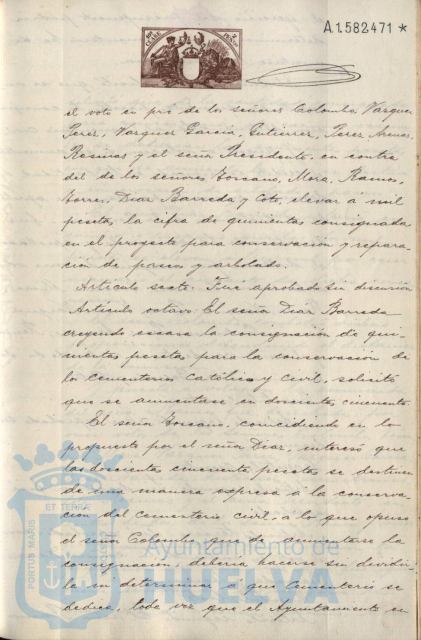 A.1.582471 *
el voto en pró de los señores Colombo, Vazquez
Perez, Vazquez García, Gutierrez, Perez
Resinas y el señor Presidente, en contra
del de los señores Toscano, Mora, Ramos,
Torres, Diaz Barreda y Coto, elevar a mil
pesetas, la cifra de quinientas consignada
en el proyecto para conservacion y repara-
ción de paseos y arbolado.
Artículo sexto. Fué aprobado sin discusion
Artículo octavo. El señor Diaz Barreda
creyendo escasa la consignación de qui-
nientas pesetas para la conservación de
los cementerios católico y civil, solicitó
que se aumentase en doscientas cincuenta.
El señor Toscano, coincidiendo en lo
propuesto por el señor Diaz, interesó que
las doscientas cincuenta pesetas se destinen
de una manera expresa á la conserva-
cion del cementerio civil, a lo que opuso
el señor Colombo que de aumentarse la
consignación, debería hacerse sin dividir-
la ni determinar a que cementerio se
dedica, toda vez que el Ayuntamiento en
PORTUS MARIS
ET TERRÆ
Ayuntamiento de
HUELVA